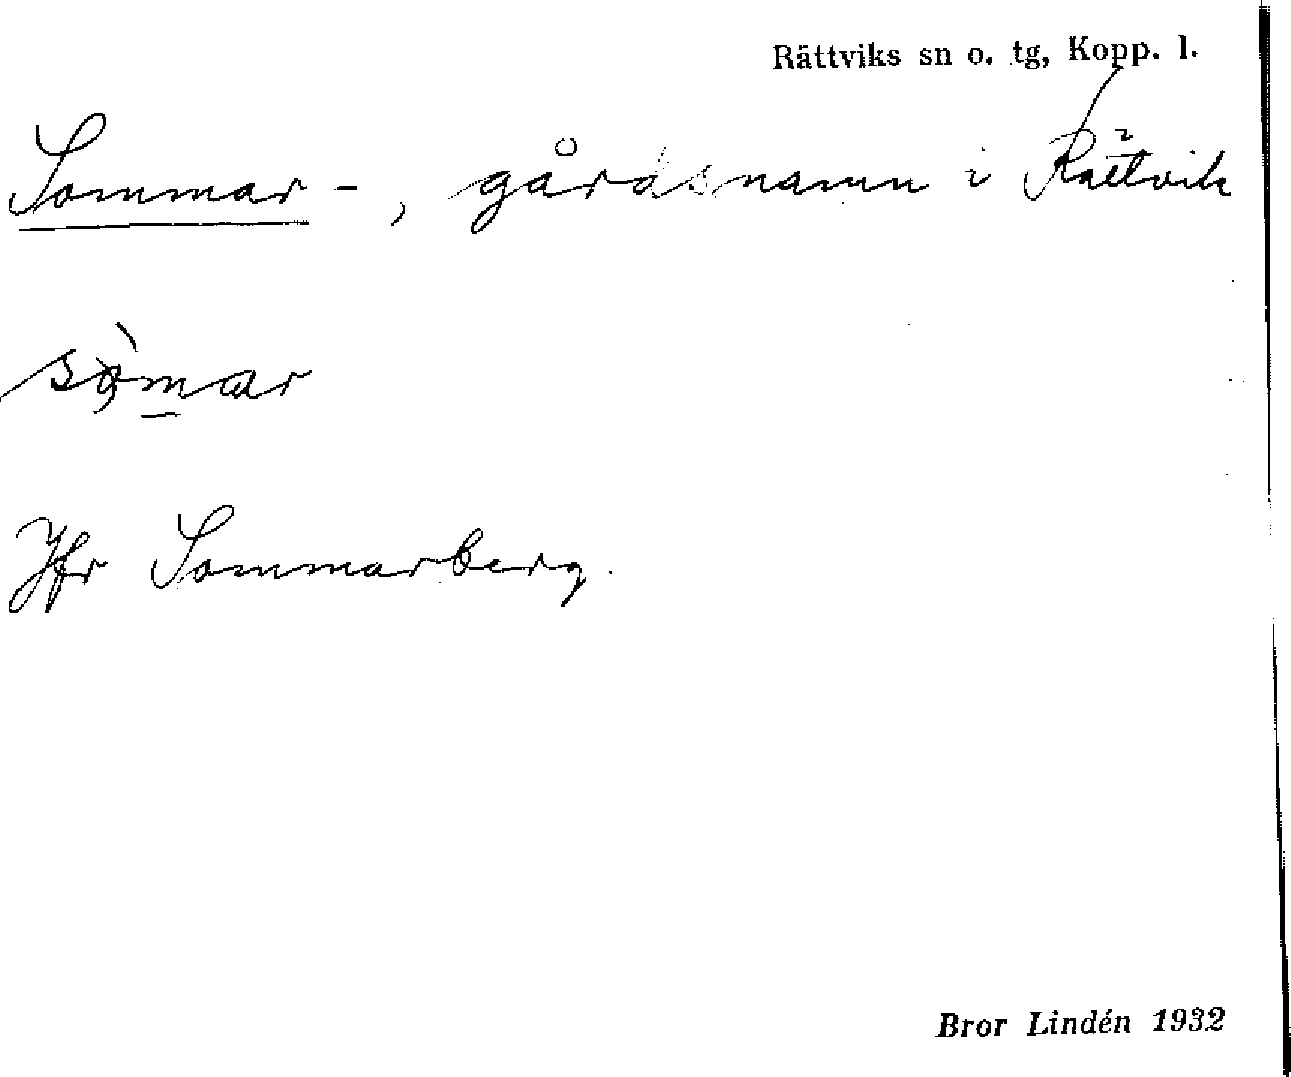 Rättviks sn o. tg, Kopp. l.
Sommar-, gårdsnamn i Rättvik
sò̩m̲ar
Jfr Sommarberg.
Bror Lindén 1932